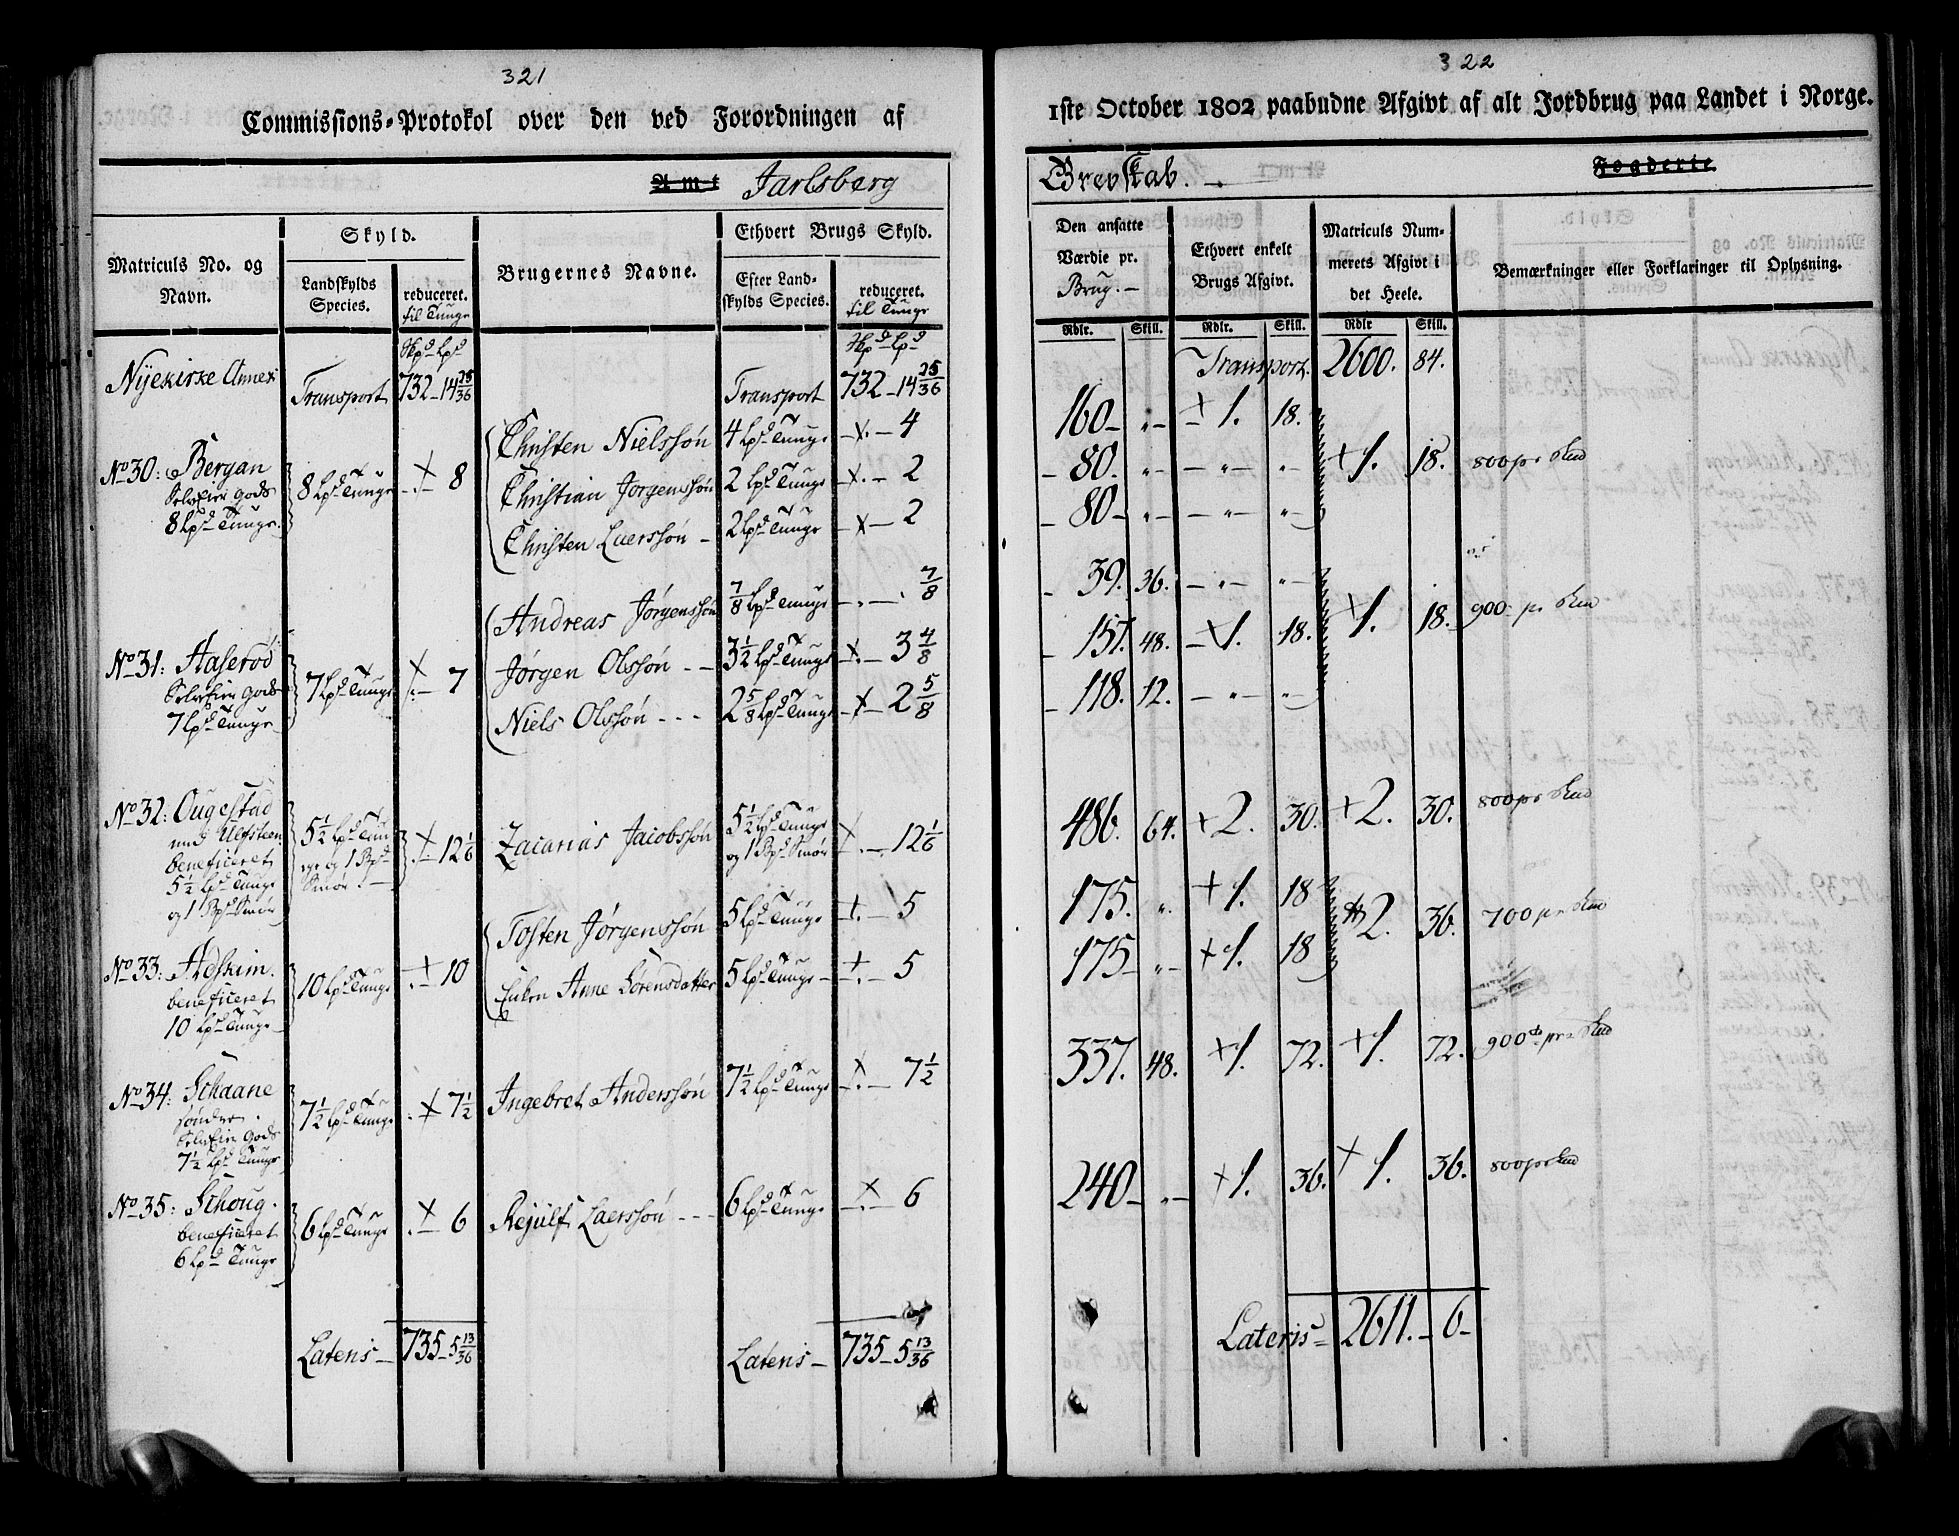 321
Commissions-Protokol over den ved Forordningen af
Amt Jarlsberg
Matriculs No. og Navn.
Skyld.
Landskylds Species.
reduceret. til Tunge
Brugernes Navne.
Ethvert Brugs Skyld.
Efter Landskylds Species.
reduceret. til Tunge
Skpd Lpd Skpd Lpd
Nijekirke Annex Transport 732 - 14 25/36 Transport 732 - 14 25/36
No 30: Bergan
SelvEier Gods
8 Lpd Tunge
8 Lpd Tunge 8
Christen Nielssøn 4 Lpd Tunge 4
Christian Jørgenssøn 2 Lpd Tunge 2
Christen Laerssøn 2 Lpd Tunge 2
No 31: Aaserød
SelvEier Gods
7 Lpd Tunge
7 Lpd Tunge 7
Andreas Jørgenssøn 7/8 Lpd Tunge 7/8
Jørgen Olssøn 3 1/2 Lpd Tunge 3 4/8
Niels Olssøn 2 5/8 Lpd Tunge 2 5/8
No 32: Ougestad
med Ulfsteen
beneficeret
5 1/2 Lpd Tunge
og 1 Bpd Smør
5 1/2 Lpd Tunge og 1 Bpd Smør 12 1/6
Zacarias Jacobssøn 5 1/2 Lpd Tunge og 1 Bpd Smør 12 1/6
No 33: Adskim.
beneficeret
10 Lpd Tunge
10 Lpd Tunge 10
Tosten Jørgenssøn 5 Lpd Tunge 5
Enken Anne Sørensdatter 5 Lpd Tunge 5
No 34: Schaane
søndre.
SelvEier Gods
7 1/2 Lpd Tunge
7 1/2 Lpd Tunge 7 1/2
Ingebret Anderssøn 7 1/2 Lpd Tunge 7 1/2
No 35: Schoug.
beneficeret
6 Lpd Tunge
6 Lpd Tunge 6
Rejulf Laerssøn 6 Lpd Tunge 6
Lateris 735 - 5 13/36 Lateris 735 - 5 13/36
322
1ste October 1802 paabudne Afgivt af alt Jordbrug paa Landet i Norge.
Grevskab. Fogderie.
Den ansatte Værdie pr. Brug.
Ethvert enkelt Brugs Afgivt.
Matriculs Nummerets Afgivt i det Heele.
Bemærkninger eller Forklaringer til Oplysning.
Rdlr. Skill. Rdlr. Skill. Rdlr Skill.
Transport. 2600. 84.
160 " 1. 18.
80. " " " 1. 18. 800 pr Skd
80 " " "
39. 36. " "
157. 48. 1. 18. 1. 18. 900 pr Skd
118. 12. " "
486. 64. 2. 30. 2. 30. 800 pr Skd
175. " 1. 18 2. 36. 700 pr Skd
175 " 1. 18
337. 48. 1. 72. 1. 72. 900 pr Skd
240 " 1. 36. 1. 36. 800 pr Skd
Lateris 2611. 6